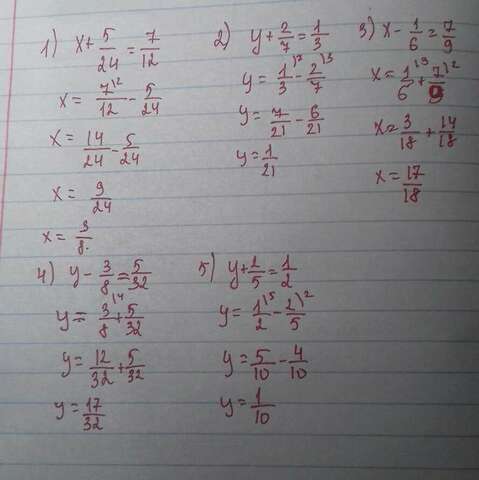 1) x + 5/24 = 7/12
x = 7\2/12 - 5/24
x = 14/24 - 5/24
x = 9/24
x = 3/8.
2) y + 2/7 = 1/3
y = 1\7/3 - 2\3/7
y = 7/21 - 6/21
y = 1/21
3) x - 1/6 = 7/9
x = 1\3/6 + 7\2/9
x = 3/18 + 14/18
x = 17/18
4) y - 3/8 = 5/32
y = 3\4/8 + 5/32
y = 12/32 + 5/32
y = 17/32
5) y + 2/5 = 1/2
y = 1\5/2 - 2\2/5
y = 5/10 - 4/10
y = 1/10